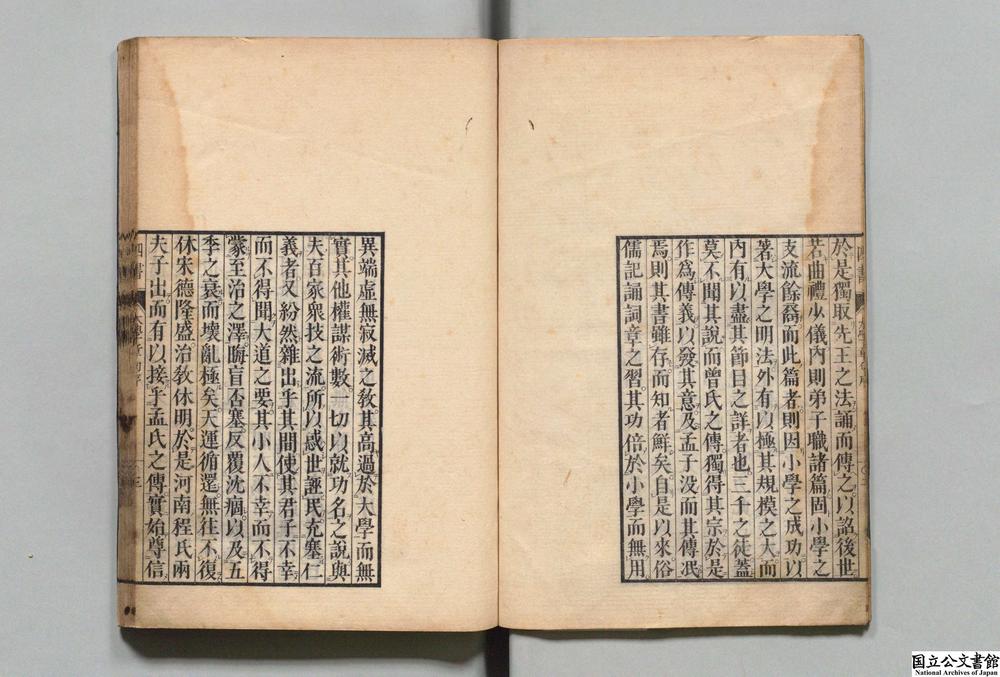 於是獨取先王之法誦而傳之以詔後世
若曲禮少儀內則弟子職諸篇固小學之
支流餘裔而此篇者則因小學之成功以
著大學之明法外有以極其規模之大而
內有以盡其節目之詳者也三千之徒蓋
莫不聞其說而曾氏之傳獨得其宗於是
作爲傳義以發其意及孟子沒而其傳泯
焉則其書雖存而知者鮮矣自是以來俗
儒記誦詞章之習其功倍於小學而無用
異端虛無寂滅之敎其高過於大學而無
實其他權謀術數一切以就功名之說與
夫百家衆技之流所以惑世誣民充塞仁
義者又紛然雜出乎其間使其君子不幸
而不得聞大道之要其小人不幸而不得
蒙至治之澤晦盲否塞反覆沈痼以及五
季之衰而壞亂極矣天運循還無往不復
休宋德隆盛治敎休明於是河南程氏兩
夫子出而有以接乎孟氏之傳實始尊信
四書
三
国立公文書館
National Archives of Japan